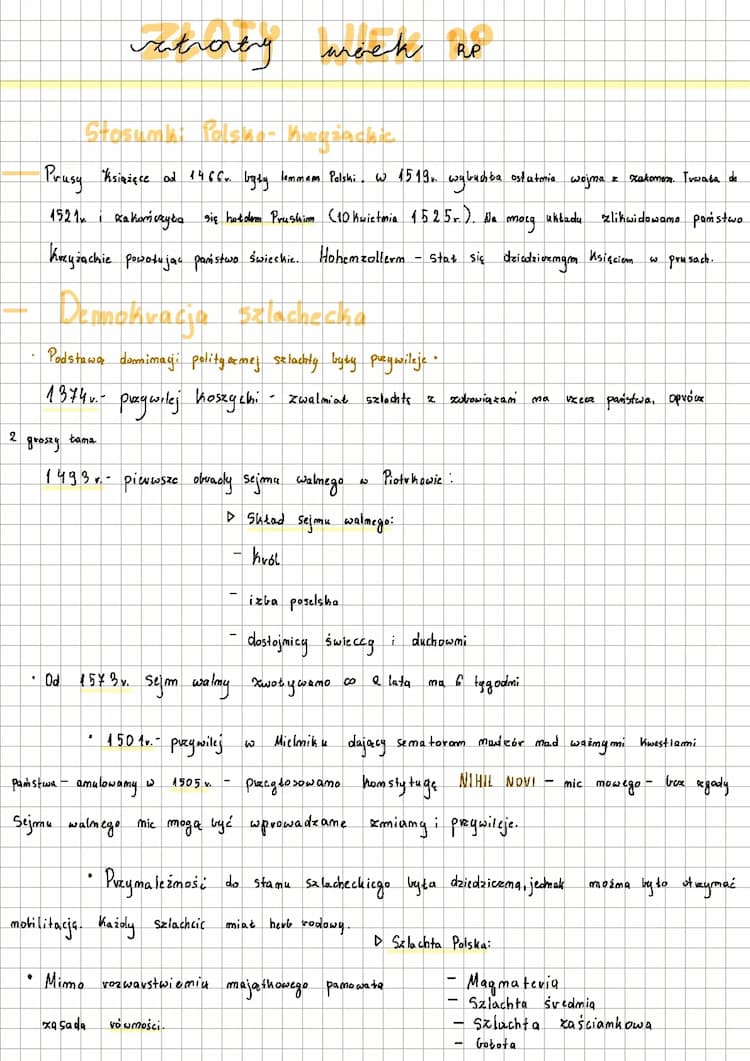 ZŁOTY WIEK RP
złoty wiek RP
Stosunki Polsko-Krzyżackie
— Prusy Książęce od 1466r. były lennem Polski. W 1519r. wybuchła ostatnia wojna z zakonem. Trwała do
1521r. i zakończyła się hołdem Pruskim (10 kwietnia 1525r.). Na mocy układu zlikwidowano państwo
Krzyżackie powołując państwo świeckie. Hohenzollern - stał się dziedzicznym Księciem w prusach.
— Demokracja szlachecka
· Podstawą dominacji politycznej szlachty były przywileje.
1374r.- przywilej koszycki - zwalniał szlachtę z zobowiązań na rzecz państwa, oprócz
2 groszy łana
1493r.- pierwsze obrady sejmu walnego w Piotrkowie:
▷ Skład sejmu walnego:
- król
- izba poselska
- dostojnicy świeccy i duchowni
· Od 1573r. sejm walny zwoływano co 2 lata na 6 tygodni
· 1501r.- przywilej w Mielniku dający senatorom nadzór nad ważnymi kwestiami
państwa - anulowany w 1505r. - przegłosowano konstytucję NIHIL NOVI - nic nowego - bez zgody
Sejmu walnego nic mogą być wprowadzane zmiany i przywileje.
· Przynależność do stanu szlacheckiego była dziedziczna, jednak można było otrzymać
nobilitację. Każdy szlachcic miał herb rodowy.
▷ Szlachta Polska:
· Mimo rozwarstwienia majątkowego panowała
zasada równości.
- Magnateria
- Szlachta średnia
- Szlachta zaściankowa
- Gołota